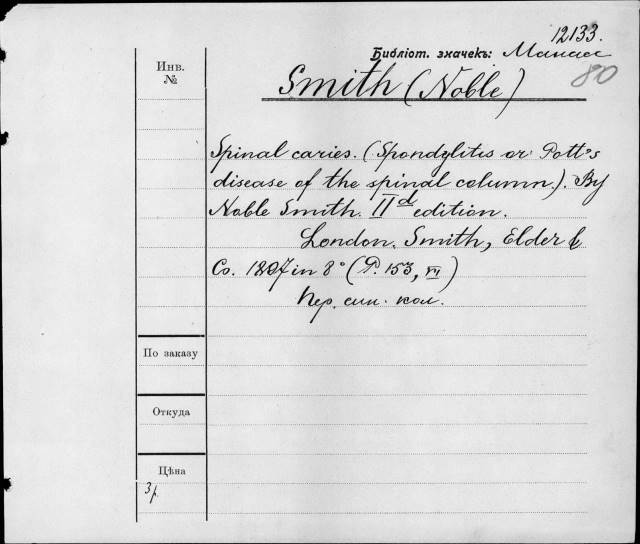 12133.
Библіот. значекъ: Манасс
80
Инв.
№
Smith (Noble)
Spinal caries. (Spondylitis or Pott's
disease of the spinal column.). By
Noble Smith. IId edition.
London. Smith, Elder &
Co. 1897 in 8° (P. 153, VI)
Пер. син. кол.
По заказу
Откуда
Цѣна
3 р.